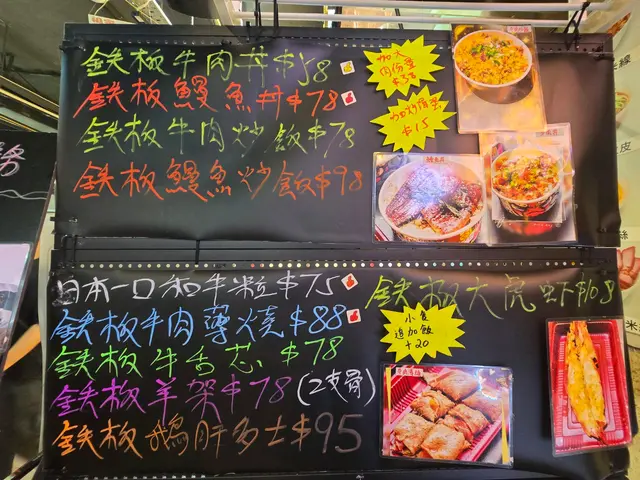 鉄板牛肉丼$58
鉄板鰻魚丼$78
鉄板牛肉炒飯$78
鉄板鰻魚炒飯$98
加大
肉份量
$38
$15
日本一口和牛粒$75
鉄板牛肉薄燒$88
鉄板牛舌芯$78
鉄板羊架$78(2支骨)
鉄板鵝肝多士$95
鉄板大虎蝦$108
小食
追加飯
+20